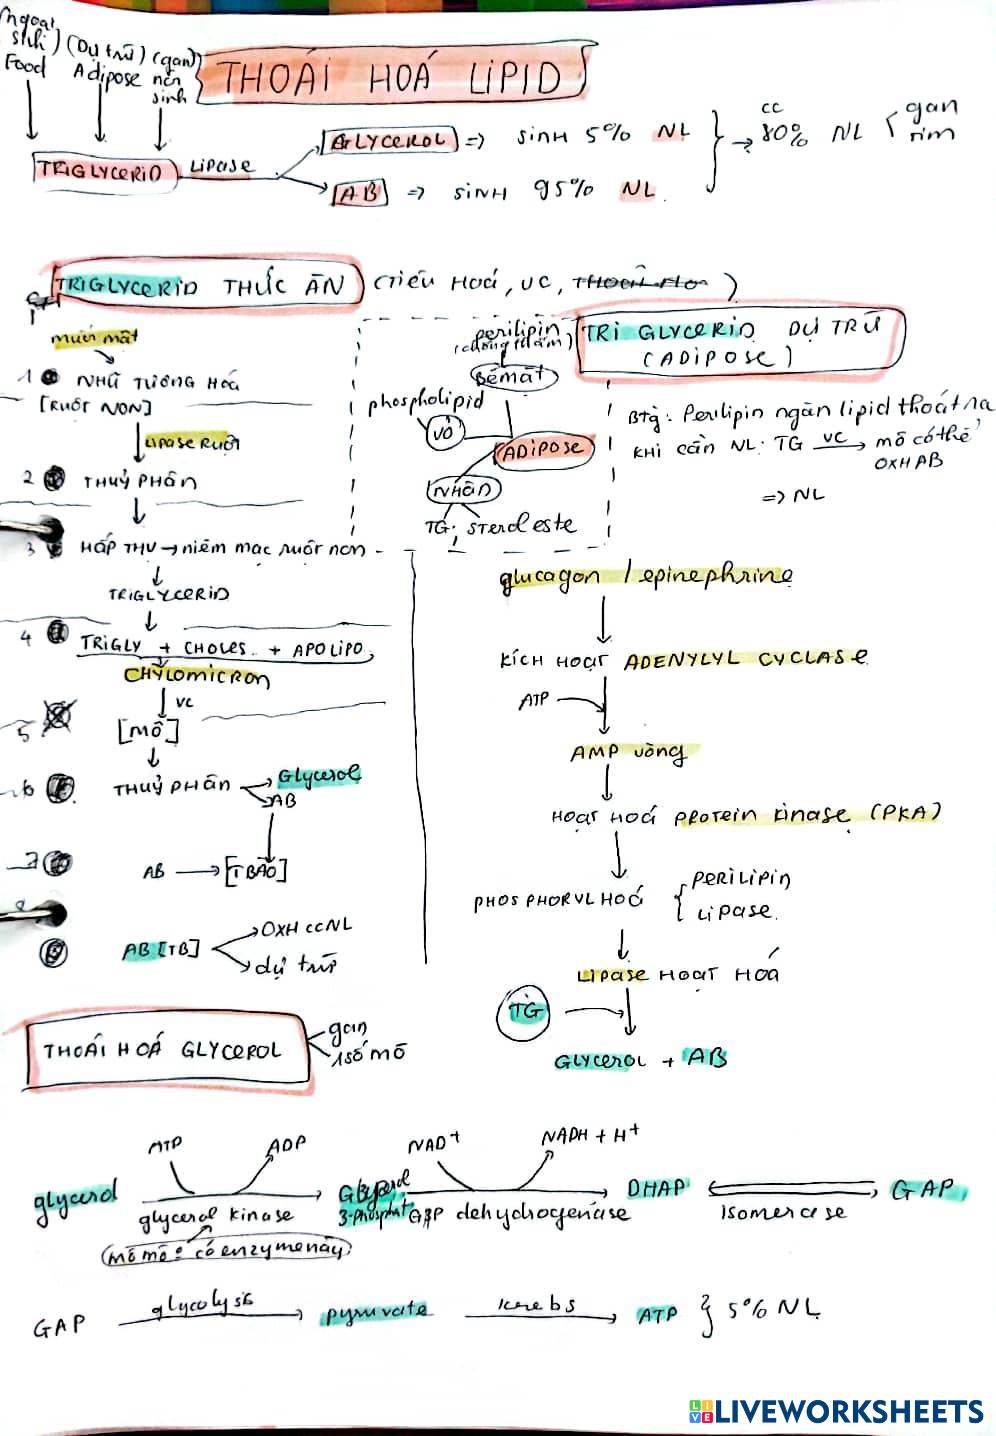 (ngoại sinh) (Dự trữ) (gan)
Food Adipose nội sinh
THOÁI HOÁ LIPID
TRIGLYCERID LIPASE
GLYCEROL => SINH 5% NL
AB => SINH 95% NL
cc 80% NL
gan
tim
TRIGLYCERID THỨC ĂN (TIÊU HOÁ, VC, THOÁI HOÁ)
muối mật
1 NHŨ TƯƠNG HOÁ
[RUỘT NON]
LIPASE RUỘT
2 THUỶ PHÂN
3 HẤP THU → niêm mạc ruột non
TRIGLYCERID
4 TRIGLY + CHOLES. + APOLIPO
CHYLOMICRON
VC
5 [MÔ]
6 THUỶ PHÂN
Glycerol
AB
7 AB → [TBÀO]
8
AB [TB]
OXH CCNL
dự trữ
perilipin
(chống thấm)
Bề mặt
phospholipid
VỎ
ADIPOSE
NHÂN
TG, sterol este
TRIGLYCERID DỰ TRỮ
(ADIPOSE)
Btg: Perilipin ngăn lipid thoát ra
KHI CẦN NL: TG VC → mô có thể
OXH AB
=> NL
glucagon / epinephrine
KÍCH HOẠT ADENYLYL CYCLASE
ATP
AMP vòng
HOẠT HOÁ PROTEIN KINASE (PKA)
PHOSPHORYL HOÁ
PERILIPIN
LIPASE
LIPASE HOẠT HOÁ
TG
GLYCEROL + AB
THOÁI HOÁ GLYCEROL
gan
1 số mô
ATP ADP NAD+ NADH + H+
glycerol → Glycerol 3-Phosphat → DHAP ⇌ GAP
glycerol kinase G3P dehydrogenase Isomerase
(mô mỡ 0 có enzyme này)
GAP glycolysis → pyruvate krebs → ATP } 5% NL
LIVEWORKSHEETS